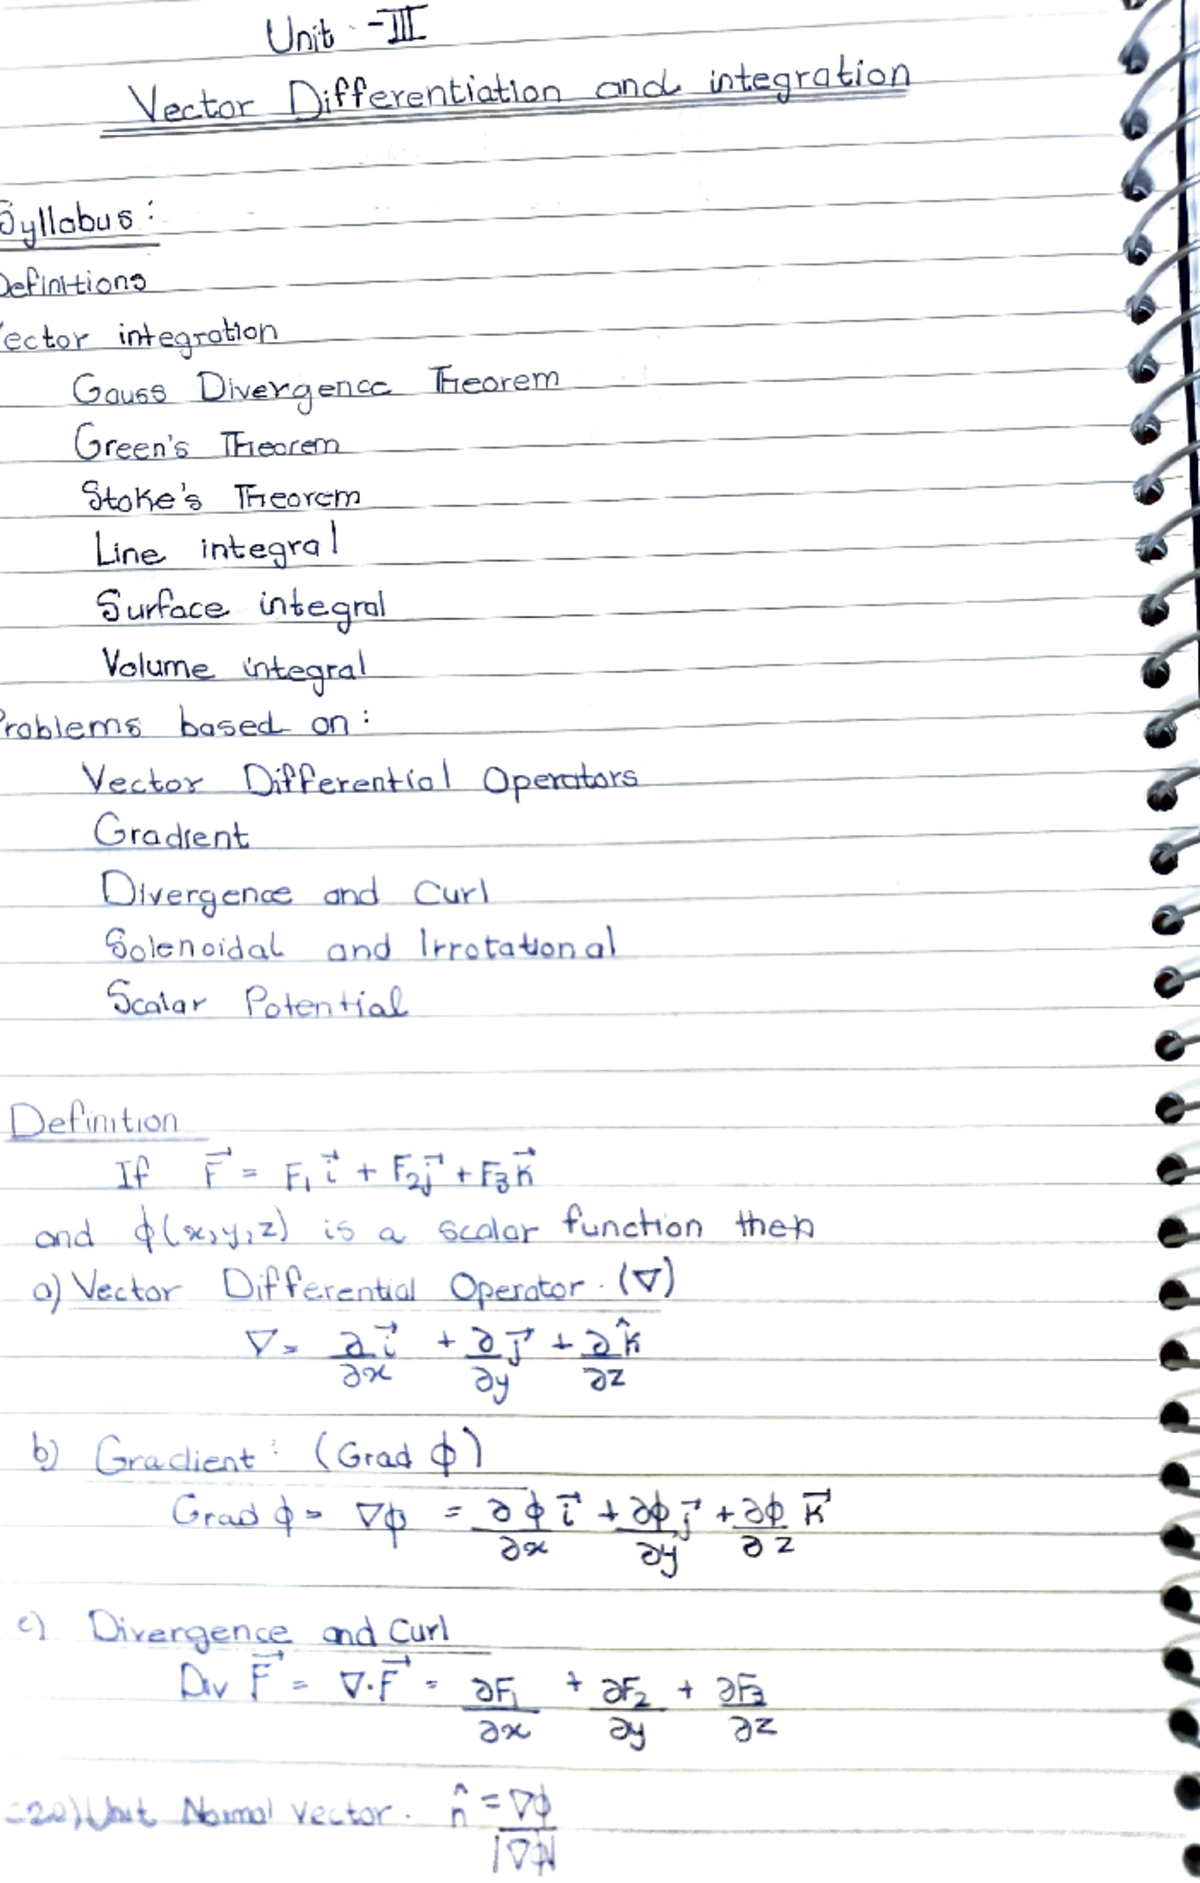 Unit - III
Vector Differentiation and integration
Syllabus :
Definitions
Vector integration
Gauss Divergence Theorem
Green's Theorem
Stoke's Theorem
Line integral
Surface integral
Volume integral
Problems based on :
Vector Differential Operators
Gradient
Divergence and Curl
Solenoidal and Irrotational
Scalar Potential
Definition
If F⃗ = F₁ i⃗ + F₂ j⃗ + F₃ k⃗
and ϕ(x,y,z) is a scalar function then
a) Vector Differential Operator. (∇)
∇ = ∂/∂x i⃗ + ∂/∂y j⃗ + ∂/∂z k̂
b) Gradient : (Grad ϕ)
Grad ϕ = ∇ϕ = ∂ϕ/∂x i⃗ + ∂ϕ/∂y j⃗ + ∂ϕ/∂z k⃗
c) Divergence and Curl
Div F⃗ = ∇·F⃗ = ∂F₁/∂x + ∂F₂/∂y + ∂F₃/∂z
Unit Normal Vector. n̂ = ∇ϕ/|∇ϕ|